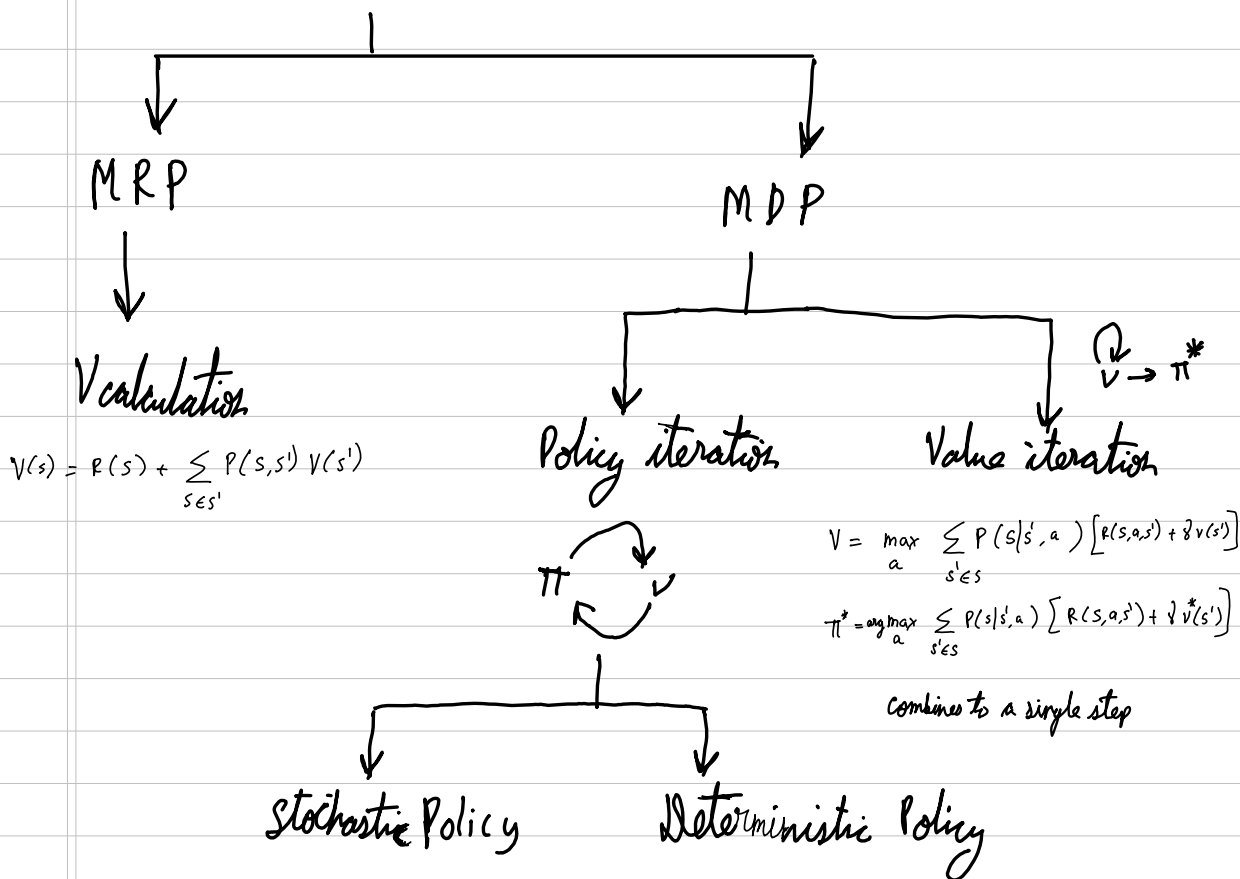 MRP
MDP
V calculation
V(s) = R(s) + ∑ P(s,s') V(s')
s∈s'
Policy iteration
V → π*
Value iteration
π V
V = max ∑ P(s|s',a) [R(s,a,s') + γ V(s')]
a s'∈s
π* = arg max ∑ P(s|s',a) [R(s,a,s') + γ V*(s')]
a s'∈s
combines to a single step
Stochastic Policy
Deterministic Policy